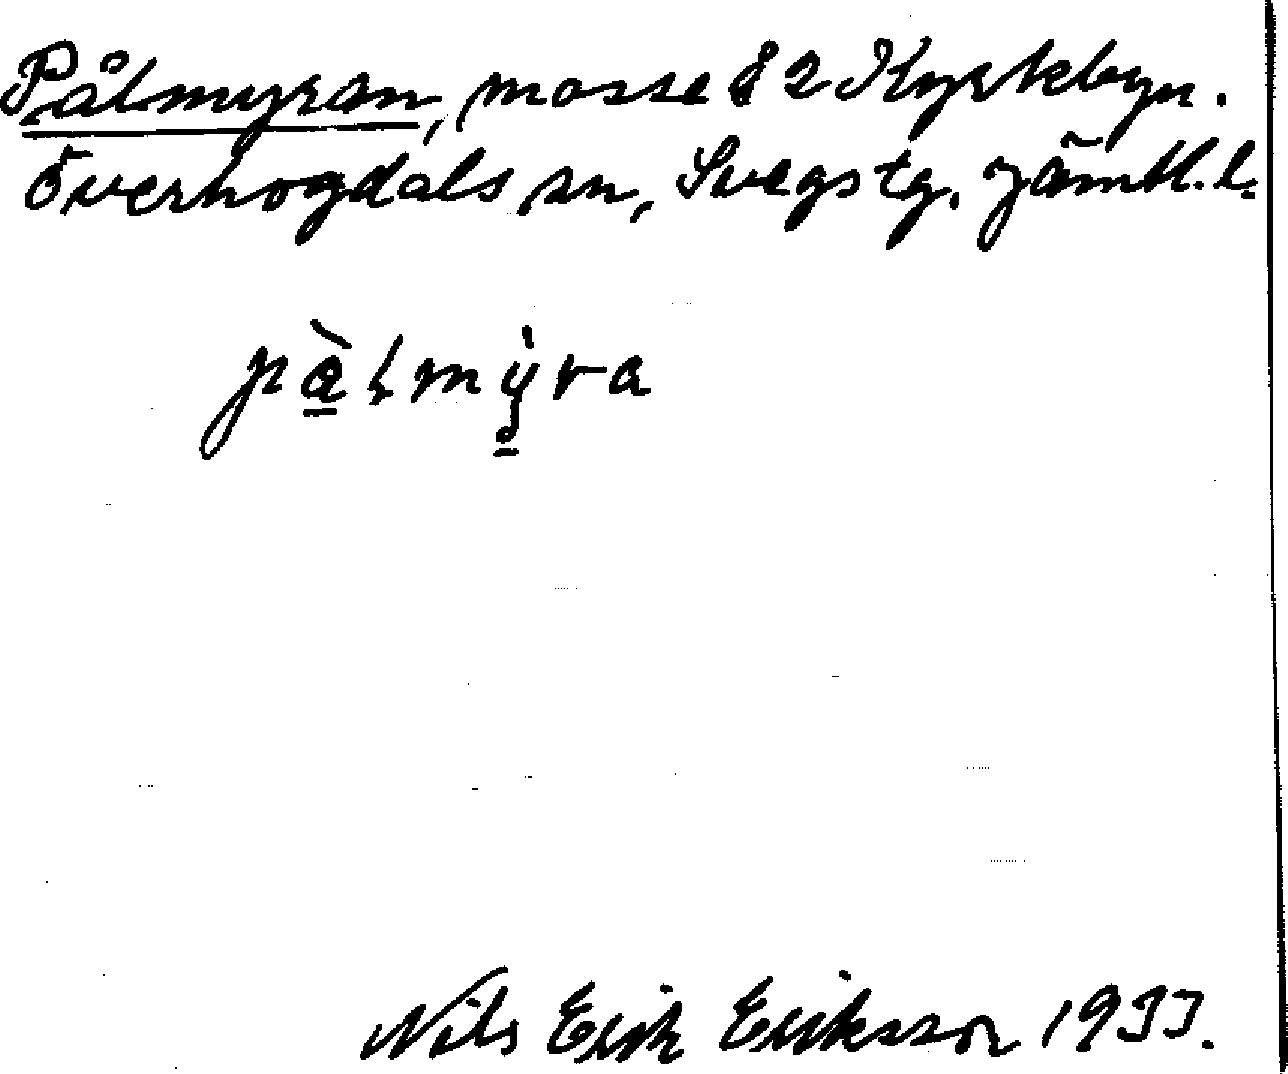 Pålmyran, mosse § 2 Kyrkbyn.
Överhogdals sn, Svegs tg. Jämtl. l.
pàlmỳra
Nils Erik Eriksson 1933.